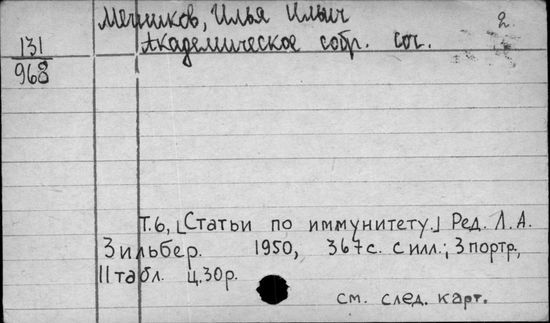 Мечников, Илья Ильич 2.
131
968
Академическое собр. соч.
Т.6, [Статьи по иммунитету.] Ред. Л.А.
Зильбер. 1950, 367с. с илл.; 3 портр.,
11 табл. ц.30р.
см. след. карт.